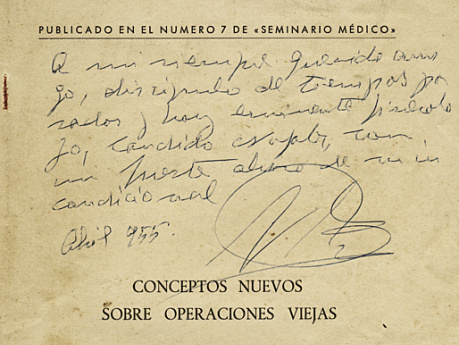 PUBLICADO EN EL NUMERO 7 DE «SEMINARIO MÉDICO»
A mi siempre querido ami
go, discípulo de tiempos pa
sados y hoy eminente
go, Candido
un fuerte abrazo de su in
condicional
Abril 955.
CONCEPTOS NUEVOS
SOBRE OPERACIONES VIEJAS